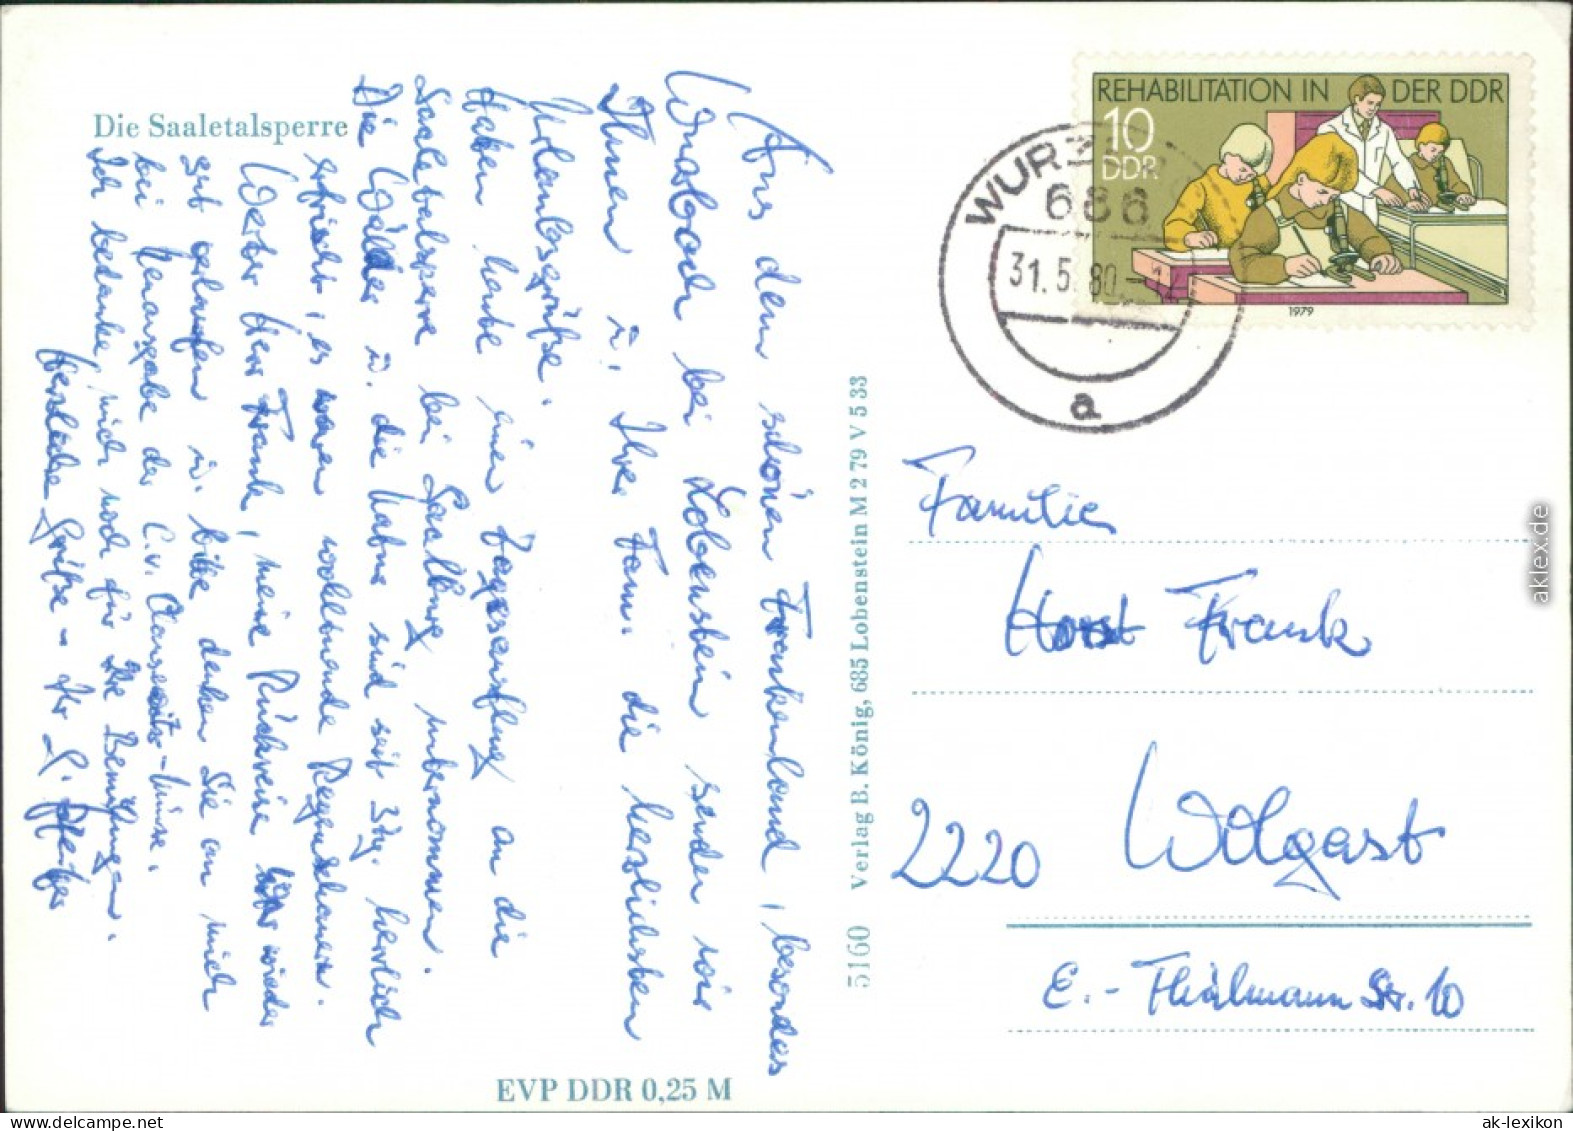 Die Saaletalsperre
Aus dem schönen Frankenland, besonders
Wurzbach bei Lobenstein senden wir
Ihnen u. Ihrer Fam. die herzlichsten
Urlaubsgrüße.
Haben heute einen Tagesausflug an die
Saaletalsperre bei Saalburg unternommen.
Die Wälder u. die Natur sind seit 3 Tg. herrlich
erfrischt, es waren wohltuende Regenschauer.
Werter Herr Frank, meine Rückreise wieder
gut gelaufen u. bitte denken Sie an mich
bei Herausgabe der C.v. Clausewitz-Münze.
Ich bedanke mich noch für Ihre Bemühungen.
Herzliche Grüße - Ihr
EVP DDR 0,25 M
5160 Verlag B. König, 685 Lobenstein M 2 79 V 5 33
REHABILITATION IN DER DDR
10
DDR
1979
WURZ
686
31.5.80
a
Familie
Horst Frank
2220 Wolgast
E.-Thälmann Str. 10
aklex.de
www.ansichtskarten-lexikon.de
ak-lexikon